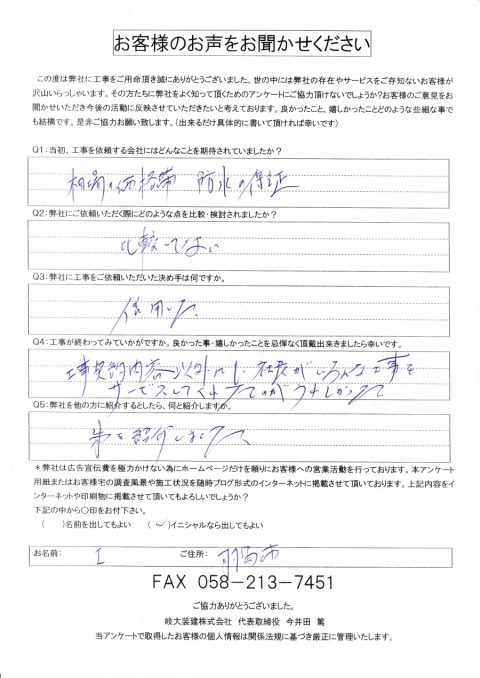 お客様のお声をお聞かせください
この度は弊社に工事をご用命頂き誠にありがとうございました。世の中には弊社の存在やサービスをご存知ないお客様が
沢山いらっしゃいます。その方たちに弊社をよく知って頂くためのアンケートにご協力頂けないでしょうか?お客様のご意見をお
聞かせいただき今後の活動に反映させていただきたいと考えております。良かったこと、嬉しかったことどのような些細な事で
も結構です。是非ご協力お願い致します。(出来るだけ具体的に書いて頂ければ幸いです)
Q1:当初、工事を依頼する会社にはどんなことを期待されていましたか?
相場の価格帯 防水の保証
Q2:弊社にご依頼いただく際にどのような点を比較・検討されましたか?
比較してない
Q3:弊社に工事をご依頼いただいた決め手は何ですか。
信用した
Q4:工事が終わってみていかがですか。良かった事・嬉しかったことを忌憚なく頂戴出来きましたら幸いです。
工事契約内容以外にし 社長がいろんな工事を
サービスしてくれたのがうれしかった
Q5:弊社を他の方に紹介するとしたら、何と紹介しますか。
弟を紹介しました
*弊社は広告宣伝費を極力かけない為にホームページだけを頼りにお客様への営業活動を行っております。本アンケート
用紙またはお客様宅の調査風景や施工状況を随時ブログ形式のインターネットに掲載させて頂いております。上記内容をイ
ンターネットや印刷物に掲載させて頂いてもよろしいでしょうか?
下記の中から〇印をお付下さい。
( )名前を出してもよい (✓)イニシャルなら出してもよい
お名前: I ご住所: 羽島市
FAX 058-213-7451
ご協力ありがとうございました。
岐太装建株式会社 代表取締役 今井田 篤
当アンケートで取得したお客様の個人情報は関係法規に基づき厳正に管理いたします。